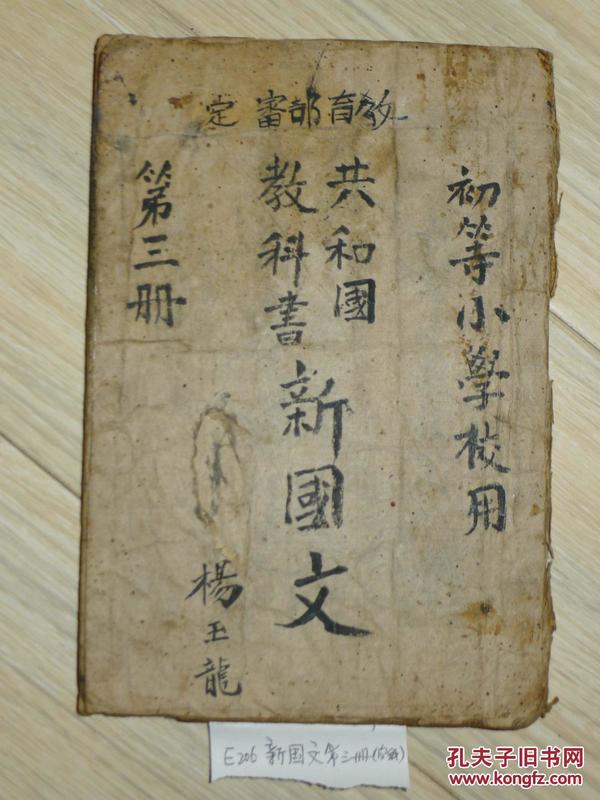 教育部審定
初等小學校用
共和國
教科書
新國文
第三册
楊玉龍
E206 新国文第三册
孔夫子旧书网
www.kongfz.com